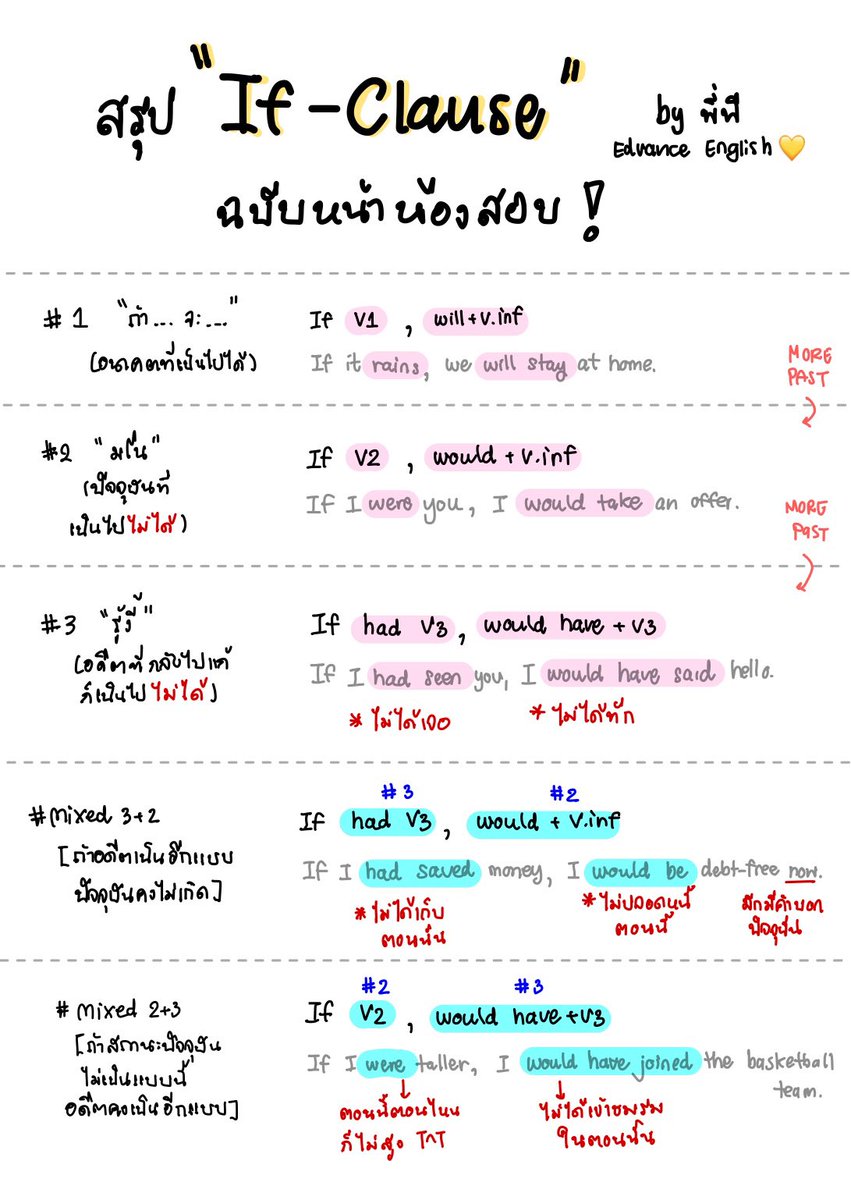 สรุป "If-Clause"
by พี่พี
Edvance English 💛
ฉบับหน้าห้องสอบ!
#1 "ถ้า...จะ..."
(อนาคตที่เป็นไปได้)
If V1, will+v.inf
If it rains, we will stay at home.
MORE
PAST
#2 "มโน"
(ปัจจุบันที่
เป็นไปไม่ได้)
If V2, would + v.inf
If I were you, I would take an offer.
MORE
PAST
#3 "รู้งี้"
(อดีตที่กลับไปแก้
ก็เป็นไปไม่ได้)
If had V3, would have + V3
If I had seen you, I would have said hello.
* ไม่ได้เจอ
* ไม่ได้ทัก
#Mixed 3+2
[ถ้าอดีตเป็นอีกแบบ
ปัจจุบันคงไม่เกิด]
#3 #2
If had V3, would + V.inf
If I had saved money, I would be debt-free now.
* ไม่ได้เก็บ
ตอนนั้น
* ไม่ปลอดหนี้
ตอนนี้
มักมีคำบอก
ปัจจุบัน
# Mixed 2+3
[ถ้าสถานะปัจจุบัน
ไม่เป็นแบบนี้
อดีตคงเป็นอีกแบบ]
#2 #3
If V2, would have +V3
If I were taller, I would have joined the basketball
team.
ตอนนี้ตอนไหน
ก็ไม่สูง T^T
ไม่ได้เข้าชมรม
ในตอนนั้น